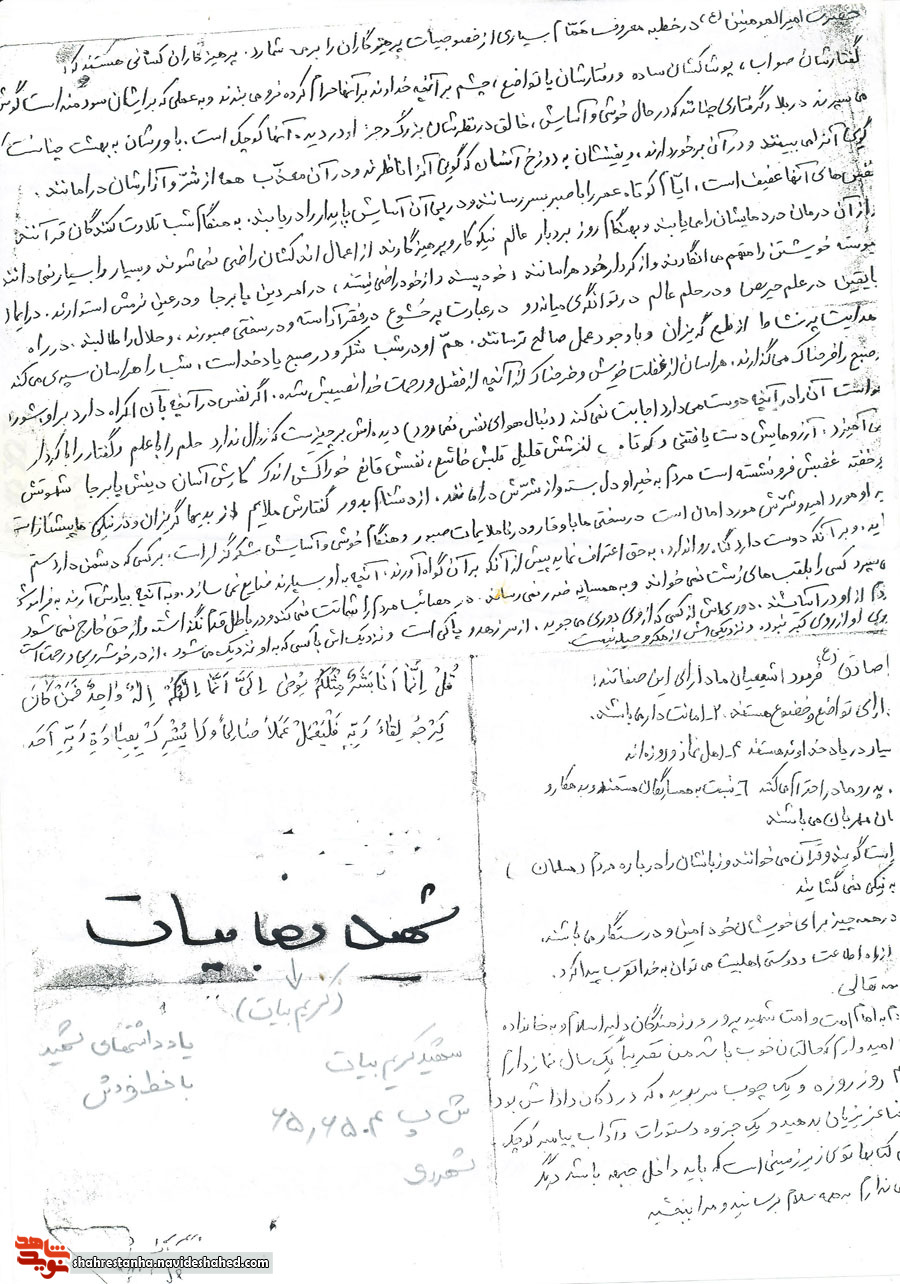 حضرت امیرالمومنین (ع) در خطبه معروف همام بسیاری از خصوصیات پرهیزگاران را برمی شمارد. پرهیزگاران کسانی هستند که:
گفتارشان صواب، پوشاکشان ساده و رفتارشان با تواضع، چشم بر آنچه خداوند بر آنها حرام کرده فرو می بندند و به علمی که برایشان سودمند است گوش
می سپرند در بلا و گرفتاری چنانند که در حال خوشی و آسایش، خالق در نظرشان بزرگ و جز او در دیده آنها کوچک است. باورشان به بهشت چنانست
گویی آنرا می بینند و در آن برخوردارند، و یقینشان به دوزخ آنسان که گویی آنرا ناظرند و در آن معذّب همه از شرّ و آزارشان در امانند.
نفس های آنها عفیف است، ایّام کوتاه عمر را با صبر بسر رسانند و در پی آن آسایش پایدار را دریابند. به هنگام شب تلاوت کنندگان قرآنند
از آن درمان دردهایشان را می یابند و بهنگام روز بردبار عالم نیکوکار و پرهیزگارند از اعمال اندکشان راضی نمی شوند و بسیار را بسیار نمی دانند
پیوسته خویشتن را متهم می انگارند و از کردار خود هراسانند، خود پسند و از خود راضی نیستند، در امر دین پابرجا و در عین نرمش استوارند. در ایمان
با یقین در علم حریص و در حلم عالم در توانگری میانه رو در عبادت پر خشوع در فقر آراسته و در سختی صبورند، و حلال را طالبند. در راه
هدایت پر نشاط از طمع گریزان و با وجود عمل صالح ترسانند. همّ او در شب شکر و در صبح یاد خداست، شب را هراسان سپری می کند
صبح را فرحناک می گذارند. هراسان از غفلت خویش و فرحناک از آنچه از فضل و رحمت خدا نصیبش شده. اگر نفس در آنچه بآن اکراه دارد بر او بشورد
خواست آن را در آنچه دوست می دارد اجابت نمی کند (دنبال هوای نفس نمی رود) دیده اش بر چیزیست که زوال ندارد حلم را با علم و گفتار را با کردار
می آمیزد. آرزوهایش دست یافتنی و کوتاه، لغزشش قلیل قلبش خاشع، نفسش قانع خوراکش اندک کارش آسان دینش پابرجا شهوتش
خفته غضبش فرو نشسته است مردم به خیر او دل بسته و از شرّش در امانند. از دشنام بدور گفتارش ملایم از بدیها گریزان و در نیکی ها پیشتاز است
به او مورد امید و شرّش مورد امان است در سختی ها با وقار و در ناملایمات صبور و هنگام خوشی و آسایش شکرگزار است. بر کسی که دشمن دارد ستم
و بر آنکه دوست دارد گناه روا ندارد. به حق اعتراف نماید پیش از آنکه بر آن گواه آورند. آنچه به او سپارند ضایع نمی سازد، و به آنچه بیادش آرند به فراموشی
نمی سپرد کسی را بلقب های زشت نمی خواند و به همسایه ضرر نمی رساند. در مصائب مردم را شماتت نمی کند و در باطل قدم نگذاشته و از حق خارج نمی شود
مردم از او در آسایشند. دوری اش از کسی که از وی دوری می جوید. از سر زهد و پاکی است و نزدیک اش با کسی که به او نزدیک می شود. از در خوشرویی و رحمت است
دوری او از روی کبر نبوده و نزدیکی اش از مکر و حیله نیست
قُلْ اِنَّمٰا اَنَا بَشَرٌ مِثْلُکُمْ یُوحٰی اِلَیَّ اَنَّمٰا اِلٰهُکُمْ اِلٰهٌ وٰاحِدٌ فَمَنْ کٰانَ
یَرْجُو لِقٰاءَ رَبِّهِ فَلْیَعْمَلْ عَمَلاً صٰالِحاً وَ لٰا یُشْرِکْ بِعِبٰادَةِ رَبِّهِ اَحَد
صادق (ع) فرمود: شیعیان ما دارای این صفاتند:
دارای تواضع و خضوع هستند. ۲- امانت دار می باشند.
بسیار در یاد خداوند هستند ۴- اهل نماز و روزه اند
پدر و مادر احترام می کنند ۶- نسبت به همسایگان مستمند و بدهکار و
مهربان می باشند
راستگویند و قرآن می خوانند و زبانشان را درباره مردم (مسلمان)
به نیکی نمی گشایند
در همه چیز برای خویشان خود امین و درستکار می باشند.
از راه اطاعت و دوستی اهلبیت می توان به خدا تقرب پیدا کرد.
بسمه تعالی.
به امام امت و امت شهید پرور و رزمندگان دلیر اسلام و به خانواده
امیدوارم که حالتان خوب باشد من تقریباً یک سال نماز دارم
روز روزه و یک چوب سر بریده که در دکان داداش بود
عزیزیان بدهید و یک جزوه دستورات و آداب پیامبر کوچک
کتابها توی زیرزمینی است که باید داخل جعبه باشد دیگر
ندارم به همه سلام برسانید و مرا ببخشید
شهید رضا بیات
(کریم بیات)
یادداشتهای شهید
با خط خودش
شهید کریم بیات
ش پ ۶۵,۶۵۰۴
شهرری
نوید شاهد
shahrestanha.navideshahed.com